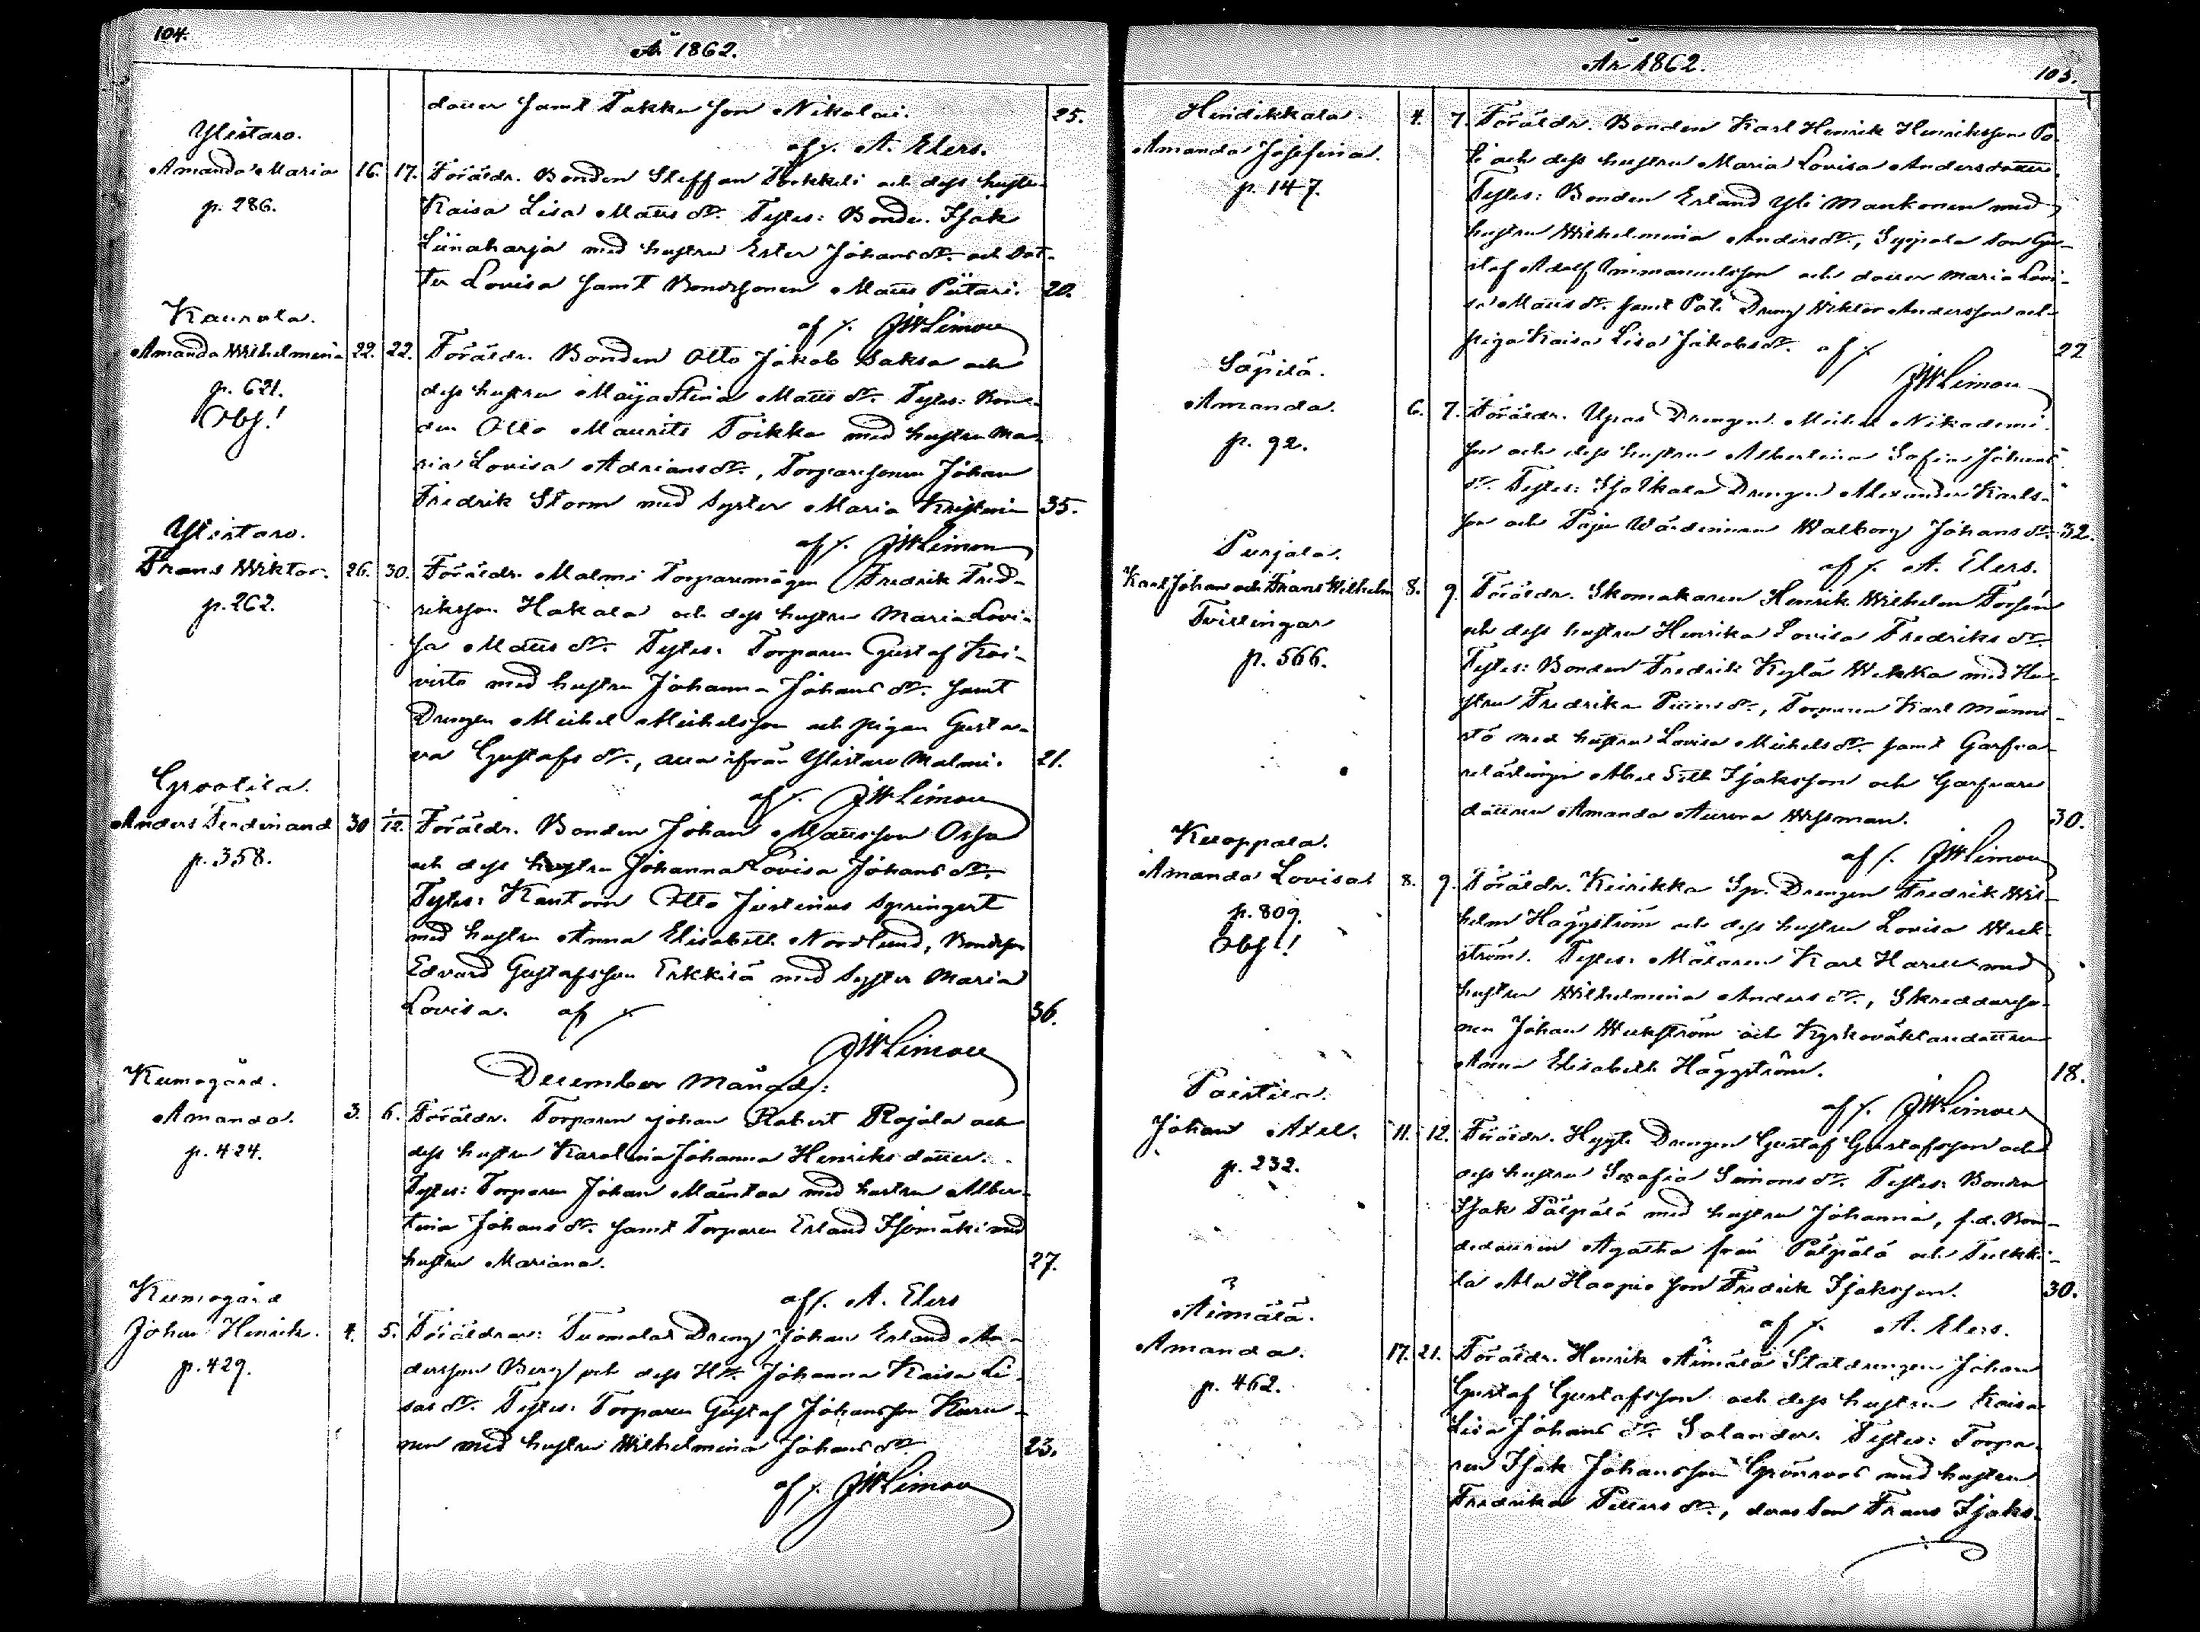 104.
År 1862.
dotter samt Takku son Nikolai. 25.
af /. A. Elers.
Ylistaro.
Amanda Maria 16. 17. Föräldr. Bonden Steffan och dess hustru
p. 286.
Kaisa Lisa Matts dr. Testes: Bonden Isak
Liinaharja med hustru Ester Johans dr. och dot-
ter Lovisa samt Bondsonen Matts Pätäri. 20.
af /. JW Limon
Kaurola.
Amanda Wilhelmina 22. 22. Föräldr. Bonden Otto Jakob Saksa och
p. 621.
Obs!
dess hustru Maija Stina Matts dr. Testes: Bon-
den Otto Maurits Toikka med hustru Ma-
ria Lovisa Adrians dr., Torparesonen Johan
Fredrik Storm med syster Maria Kristina 35.
af /. JW Limon
Ylistaro.
Frans Wiktor. 26. 30. Föräldr. Malmi Torparemågen Fredrik Fred-
p. 262.
riksson Hakala och dess hustru Maria Lovi-
sa Matts dr. Testes: Torparen Gustaf Koi-
visto med hustru Johanna Johans dr. samt
Drengen Michel Michelsson och pigan Gusta-
va Gustafs dr., alla ifrån Ylistaro Malmi. 21.
af /. JW Limon
Grootila.
Anders Ferdinand 30 1/12. Föräldr. Bonden Johan Mattsson Ossa
p. 358.
och dess hustru Johanna Lovisa Johans dr.
Testes: Kantorn Otto Justinus Springert
med hustru Anna Elisabeth Nordlund, Bondeson
Edvard Gustafsson Erkkilä med syster Maria
Lovisa. af /. 36.
JW Limon
December Månad:
Kumogård.
Amanda. 3. 6. Föräldr. Torparen Johan Robert Rojala och
p. 424.
dess hustru Karolina Johanna Henriks dotter.
Testes: Torparen Johan Mäntaa med hustru Alber-
tina Johans dr. samt Torparen Erland Isomäki med
hustru Mariana. 27.
af /. A. Elers
Kumogård
Johan Henrik. 4. 5. Föräldrar: Tuomolas Dreng Johan Erland An-
p. 429.
dersson Berg och dess H. Johanna Kaisa Li-
sas dr. Testes: Torparen Gustaf Johansson Karu-
nen med hustru Wilhelmina Johans dr. 23.
af /. JW Limon
År 1862.
105.
Hindikkala.
Amanda Josefina. 4. 7. Föräldr. Bonden Karl Henrik Henriksson Po-
p. 147.
li och dess hustru Maria Lovisa Andersdotter.
Testes: Bonden Erland Yli Mankonen med
hustru Wilhelmina Anders dr., Syppala son Gu-
staf Adolf Immanuelsson och dotter Maria Lovi-
sa Matts dr. samt Poli Dreng Wiktor Andersson och
piga Kaisa Lisa Jakobs dr. af /. 22
JW Limon
Säpilä.
Amanda. 6. 7. Föräldr. Upas Drengen Michel Nikodemi
p. 92.
son och dess hustru Albertina Sofia Johans
dr. Testes: Isotkala Drengen Alexander Karls-
son och Walborg Johans dr. 32.
af /. A. Elers.
Purjala.
Karl Johan och Frans Wilhelm 8. 9. Föräldr. Skomakaren Henrik Wilhelm Forsén
Tvillingar
p. 566.
och dess hustru Henrika Lovisa Fredriks dr.
Testes: Bonden Fredrik Kylä Wekka med Hu-
stru Fredrika dr., Torparen Karl Männi-
stö med hustru Lovisa Michels dr. samt Garfva-
relärlingen Abel Seth Isaksson och Garfvare
dottren Amanda Aurora Wessman. 30.
af /. JW Limon
Kuoppala.
Amanda Lovisa 8. 9. Föräldr. Keirikka Sp. Drengen Fredrik Wil-
p. 809.
Obs!
helm Häggström och dess hustru Lovisa Wek-
ström. Testes: Målaren Karl Harell med
hustru Wilhelmina Anders dr., Skreddareso-
nen Johan Wekström och Kyrkoväktaredottren
Anna Elisabeth Häggström. 18.
af /. JW Limon
Paistila
Johan Axel. 11. 12. Föräldr. Drengen Gustaf Gustafsson och
p. 232.
dess hustru Serafia Simons dr. Testes: Bonden
Isak Pälpälä med hustru Johanna, f.d. Bon-
dedottren Agatha från Pälpälä och Tulkki-
la Ala Haapio son Fredrik Isaksson. 30.
af /. A. Elers.
Äimälä.
Amanda. 17. 21. Föräldr. Henrik Äimälä Statdrengen Johan
p. 462.
Gustaf Gustafsson och dess hustru Kaisa
Lisa Johans dr. Salander. Testes: Torpa-
ren Isak Johansson Grönroos med hustru
Fredrika Petters dr., deras Son Frans Isaks-